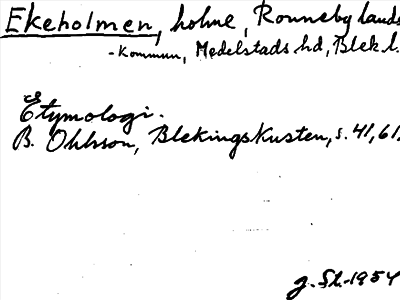 Ekeholmen, holme, Ronneby lands
-kommun, Medelstads hd, Blek. l.
Etymologi.
B. Ohlsson, Blekingskusten, s. 41, 61.
g. St. 1954